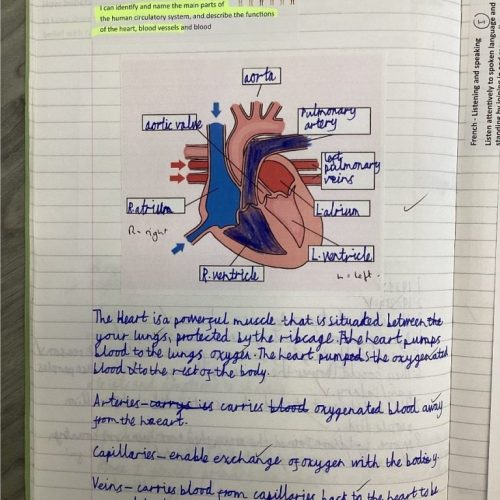 I can identify and name the main parts of
the human circulatory system, and describe the functions
of the heart, blood vessels and blood
French - Listening and speaking
Listen attentively to spoken language and
aorta
aortic valve
Pulmonary
artery
left
pulmonary
veins
R.atrium
R = right
L.atrium
L.ventricle
R.ventricle
L = left.
The Heart is a powerful muscle that is situated between the
your lungs, protected by the ribcage. The heart pumps
blood to the lungs oxygen. The heart pumped the oxygenated
blood to the rest of the body.
Arteries- carrys is carries blood oxygenated blood away
from the heart.
Capillaries- enable exchange of oxygen with the body.
Veins- carries blood from capillaries back to the heart to be